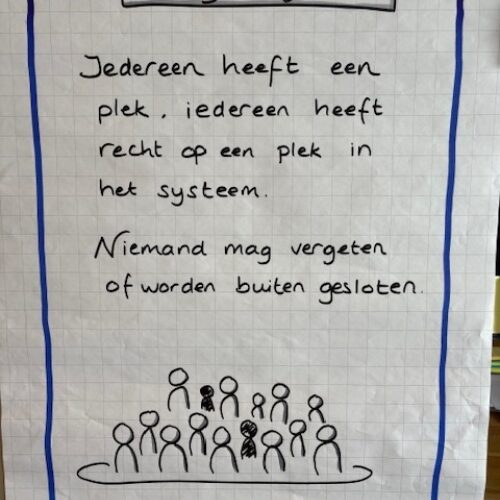 Iedereen heeft een
plek, iedereen heeft
recht op een plek in
het systeem.
Niemand mag vergeten
of worden buiten gesloten.